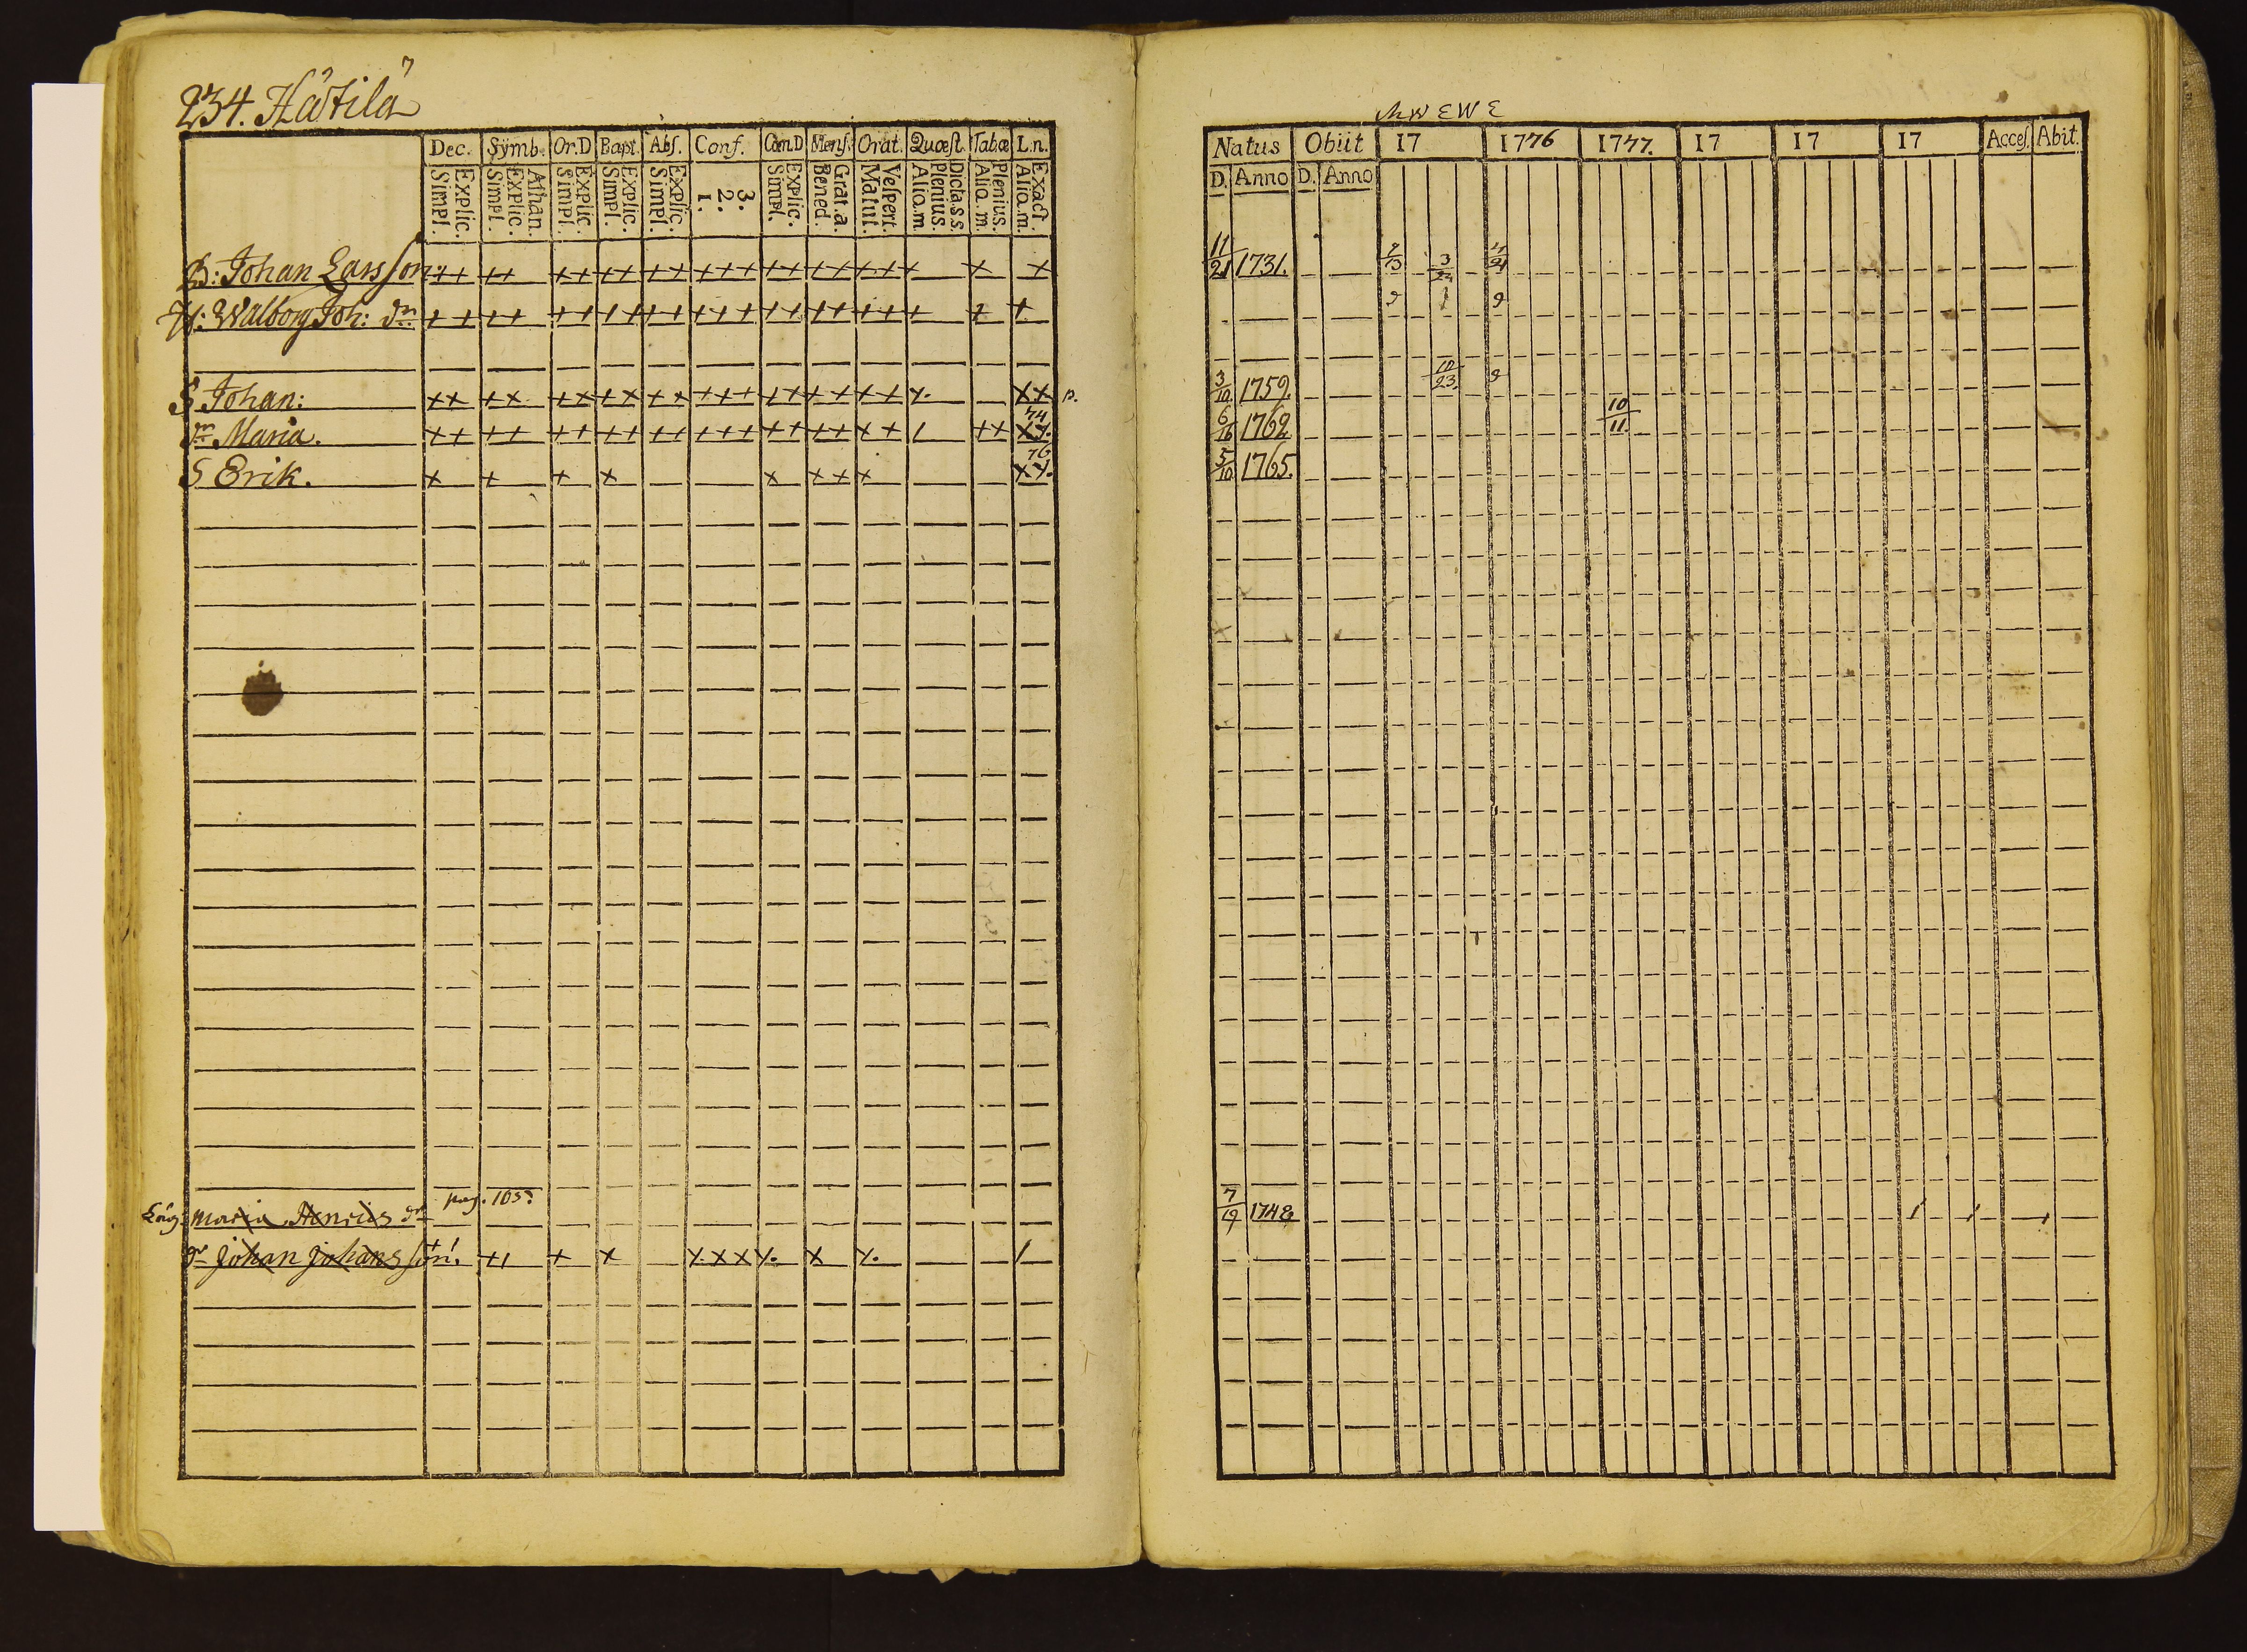 234. Hättilä
Dec. Symb. Or.D Bapt. Abſ. Conf. Com.D Menſ. Orat. Quæſt. Tab.œ L.n.
Explic. Simpl. Athan. Explic. Simpl. Explic. Simpl. Explic. Simpl. Explic. Simpl. 3. 2. 1. Explic. Simpl. Grat.a. Bened. Veſpert. Matut. Dicta.s.s. Plenius. Alio.m Plenius. Alio.m. Exact. Alio.m.
B: Johan Larsson ++ ++ ++ ++ ++ +++ ++ ++ +++ + +
H: Walborg Joh: dr ++ ++ ++ ++ ++ +++ ++ ++ +++ + +
S Johan: ++ ++ ++ ++ ++ +++ ++ ++ ++ xx p.
dr Maria. ++ ++ ++ ++ ++ +++ ++ ++ ++ / ++ 74
S Erik. + + + + x ++ x 76
Maria Henrics dr pag. 105
Johan Johansson
Natus Obiit 17 1776 1777. 17 17 17 Acceſ. Abit.
D. Anno D. Anno
11/21 1731. 3/24
3/10 1759. 12/23
6/16 1762 10/11
5/10 1765.
7/19 1748